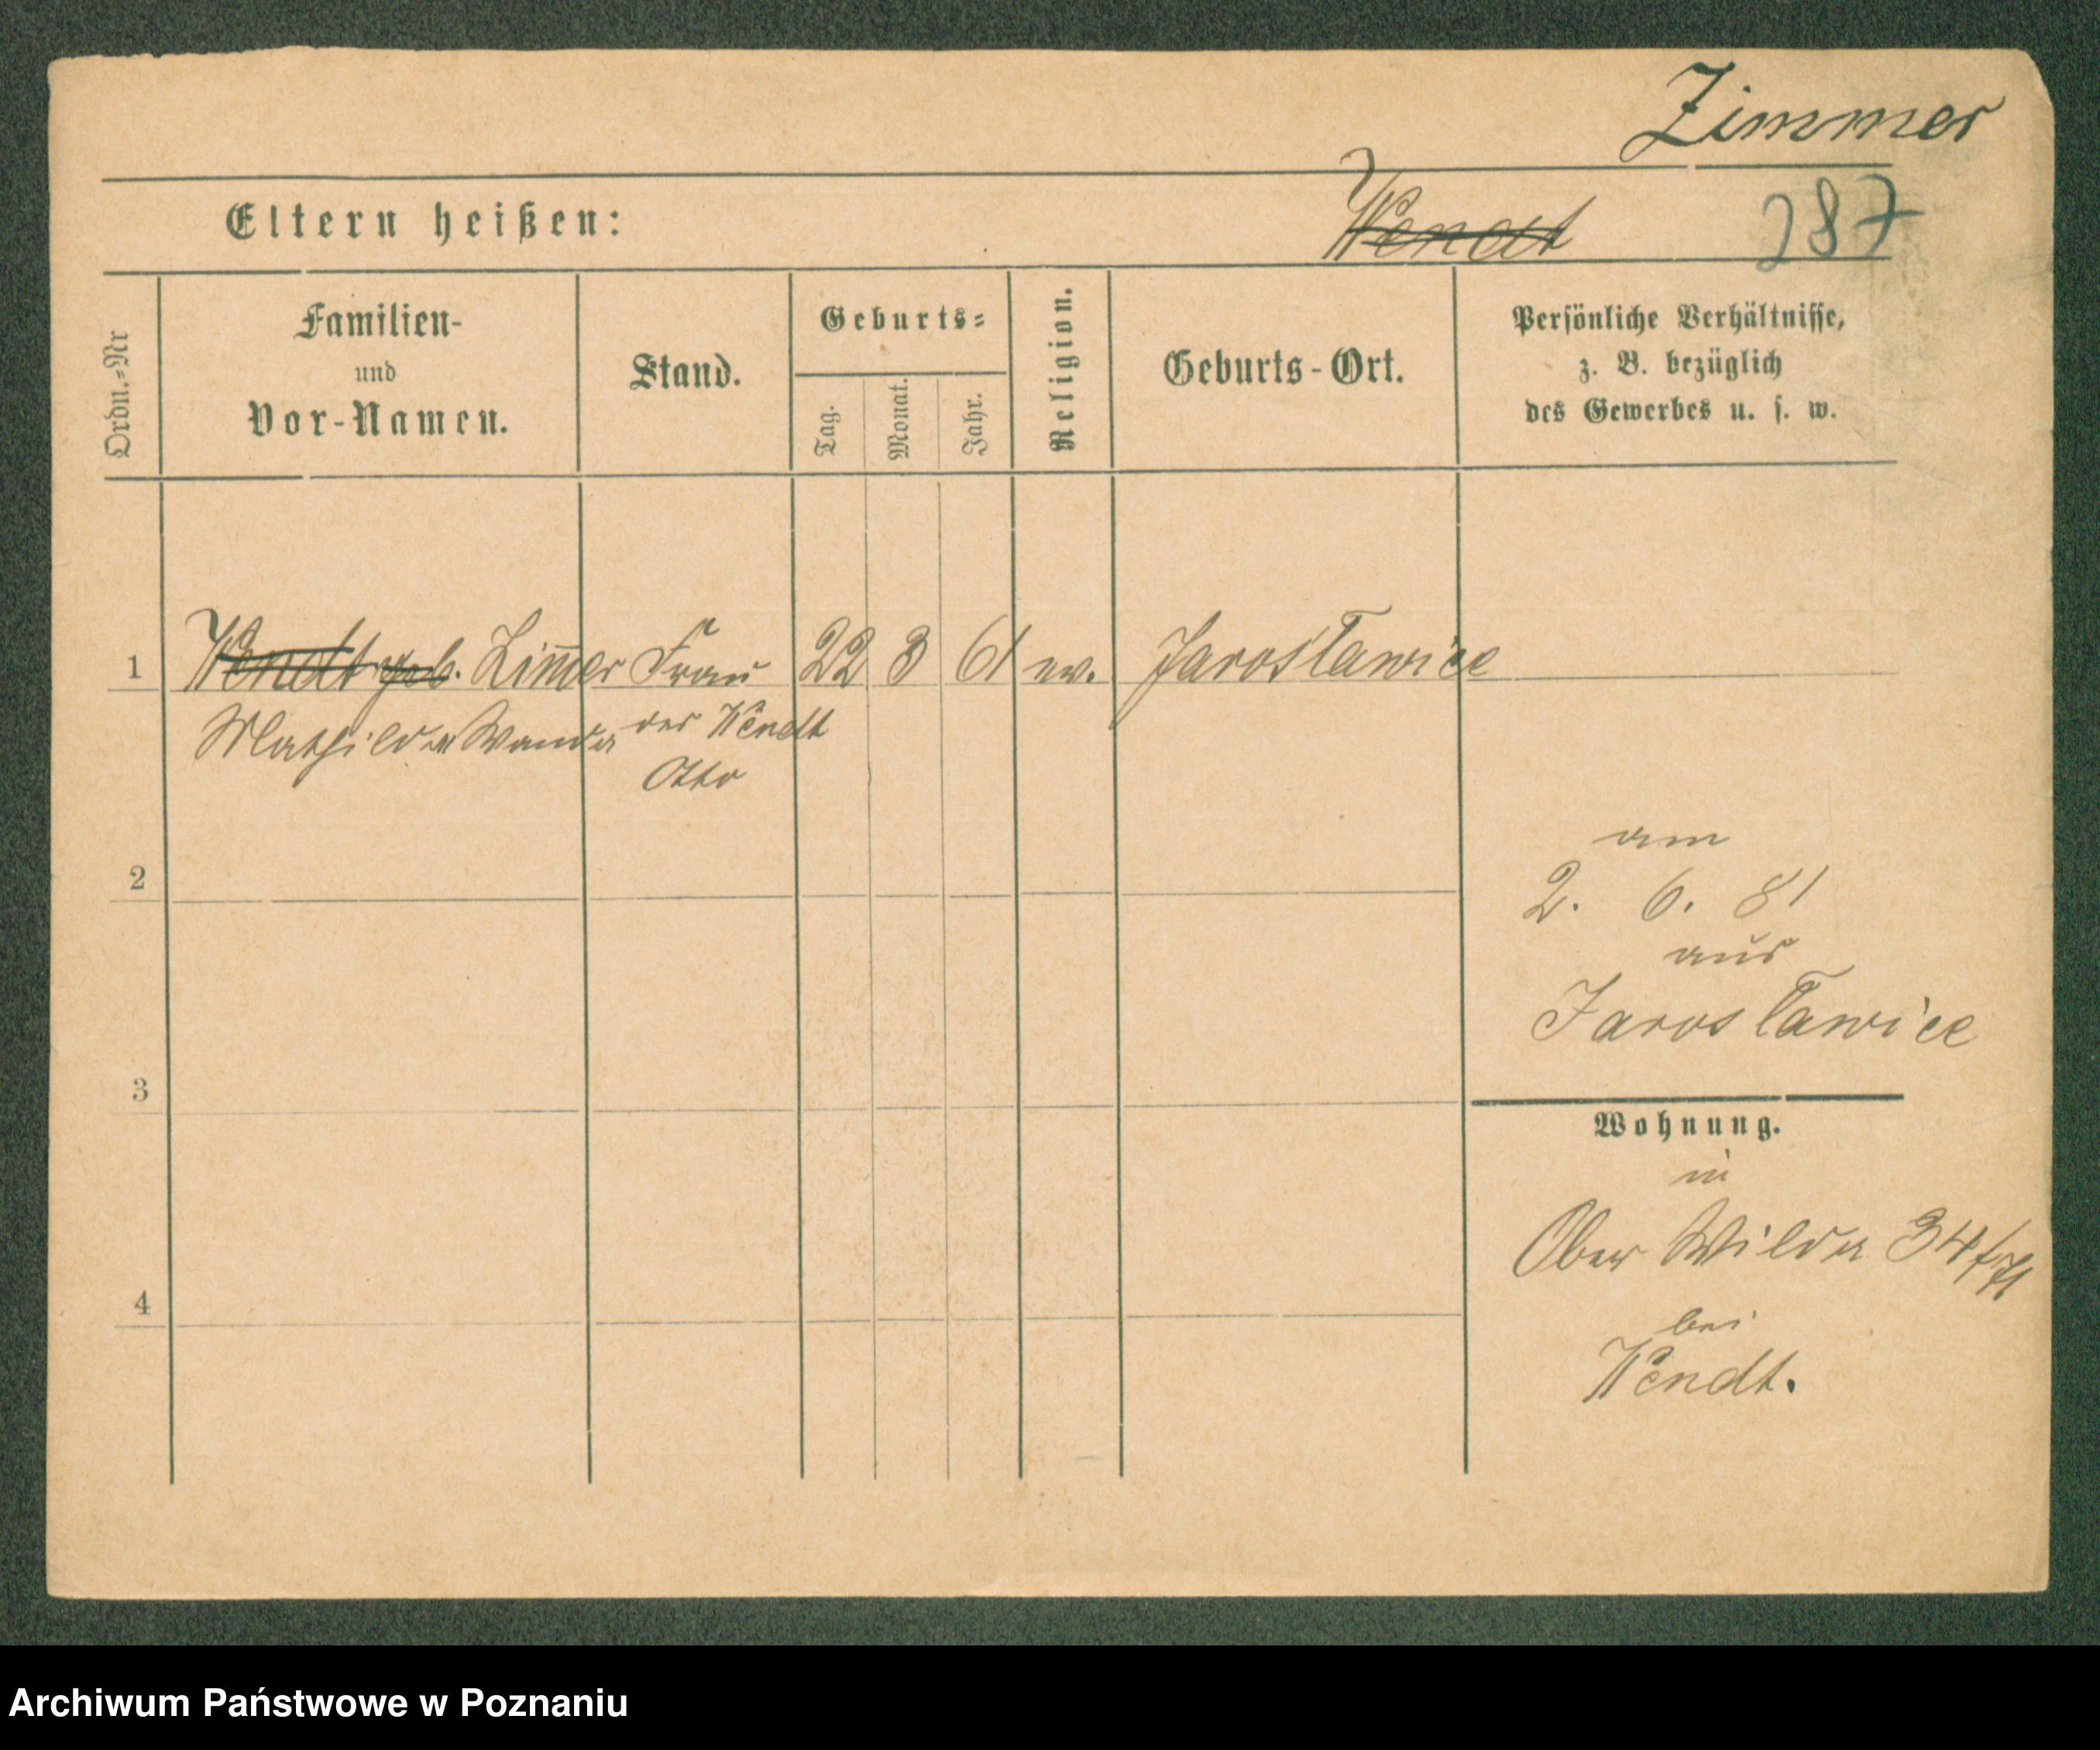 Zimmer
Eltern heißen:
Wendt
287
Ordn.=Nr
Familien-
und
Vor-Namen.
Stand.
Geburts=
Tag.
Monat.
Jahr.
Religion.
Geburts-Ort.
Persönliche Verhältnisse,
z. B. bezüglich
des Gewerbes u. s. w.
1 Wendt geb. Zim̅er Frau 22 3 61 ev. Jarosławice
Mathilde Wanda der Wendt
Otto
2
am
2. 6. 81
aus
3
Jarosławice
Wohnung.
in
Ober Wilda 34/
4
bei
Wendt.
Archiwum Państwowe w Poznaniu